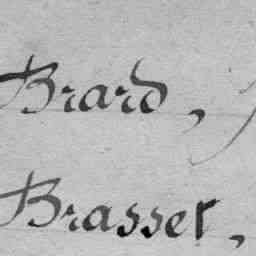 Brard,
Brasser,